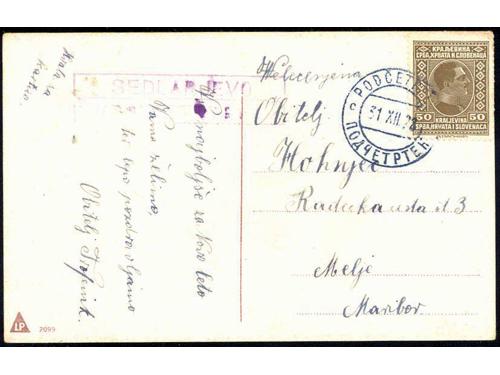 Hvala za
kartico
SEDLARJEVO
Vse najboljše za Novo leto
Vam želimo,
ter lepo pozdravljamo
Obitelj
LP 2099
Obitelj
Hohnjec
3
Melje
Maribor
PODČETRTEK
31 XII
ПОДЧЕТРТЕК
КРАЉЕВИНА
СРБА, ХРВАТА И СЛОВЕНАЦА
50 50
KRALJEVINA
SRBA, HRVATA I SLOVENACA